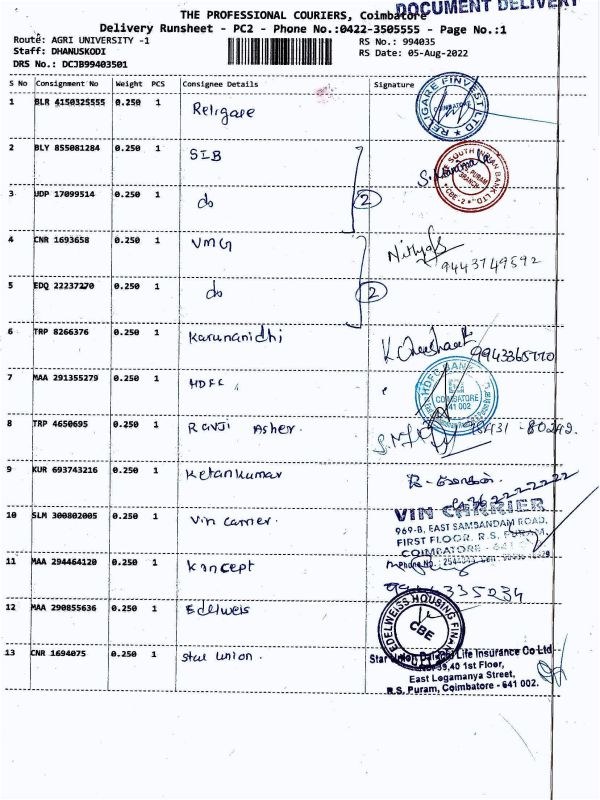 DOCUMENT DELIVERY
THE PROFESSIONAL COURIERS, Coimbatore
Delivery Runsheet - PC2 - Phone No.:0422-3505555 - Page No.:1
Route: AGRI UNIVERSITY -1
RS No.: 994035
Staff: DHANUSKODI
RS Date: 05-Aug-2022
DRS No.: DCJB99403501
S No Consignment No Weight PCS Consignee Details Signature
1 BLR 4150325555 0.250 1 Religare
RELIGARE FINVEST LTD
COIMBATORE
2 BLY 855081284 0.250 1 SIB
SOUTH INDIAN BANK LTD
R.S. PURAM BRANCH
CBE-2
3 UDP 17099514 0.250 1 do
2
4 CNR 1693658 0.250 1 VMG
9443749592
5 EDQ 22237270 0.250 1 do
2
6 TRP 8266376 0.250 1 Karunanidhi
7 MAA 291355279 0.250 1 HDFC
HDFC BANK
COIMBATORE
641 002
8 TRP 4650695 0.250 1 Ravji Asher.
80249.
9 KUR 693743216 0.250 1 Ketankumar
10 SLM 300802005 0.250 1 Vin carrier.
VIN CARRIER
969-B, EAST SAMBANDAM ROAD,
FIRST FLOOR, R.S. PURAM,
COIMBATORE - 641
Phone No.
11 MAA 294464120 0.250 1 Koncept
9944335034
12 MAA 290855636 0.250 1 Edelweis
EDELWEISS HOUSING FINANCE
CBE
13 CNR 1694075 0.250 1 Star union.
Star Union Dai-ichi Life Insurance Co Ltd
39,40 1st Floor,
East Logamanya Street,
R.S. Puram, Coimbatore - 641 002.